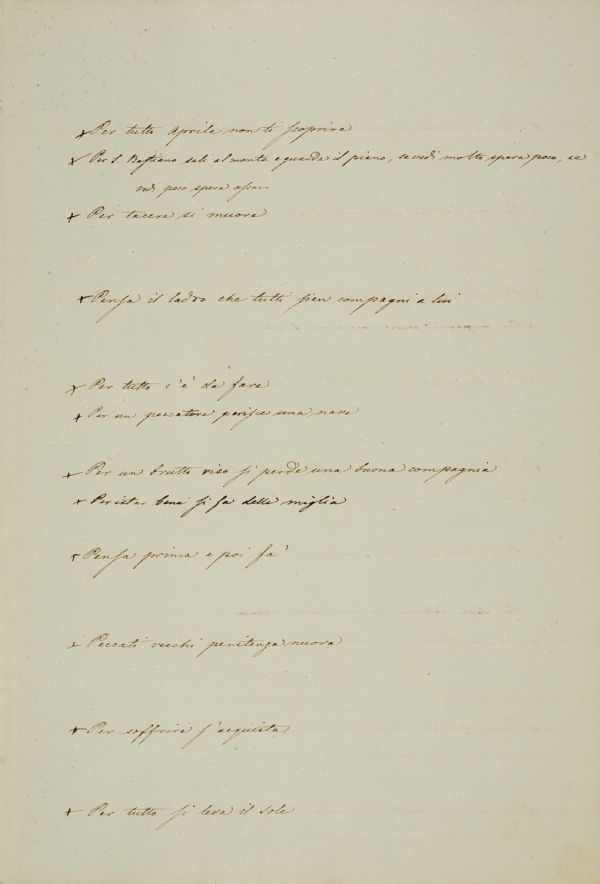 Per tutto Aprile non ti scoprire
Per S. Bastiano sali al monte e guarda il piano, se vedi molto spera poco, se
vedi poco spera assai
Per tacere si muore
Pensa il ladro che tutti sien compagni a lui
Per tutto c'è da fare
Per un peccatore perisce una nave
Per un brutto viso si perde una buona compagnia
Per istar bene si fa delle miglia
Pensa prima e poi fa'
Peccati vecchi penitenza nuova
Per soffrire s'acquista
Per tutto si leva il sole